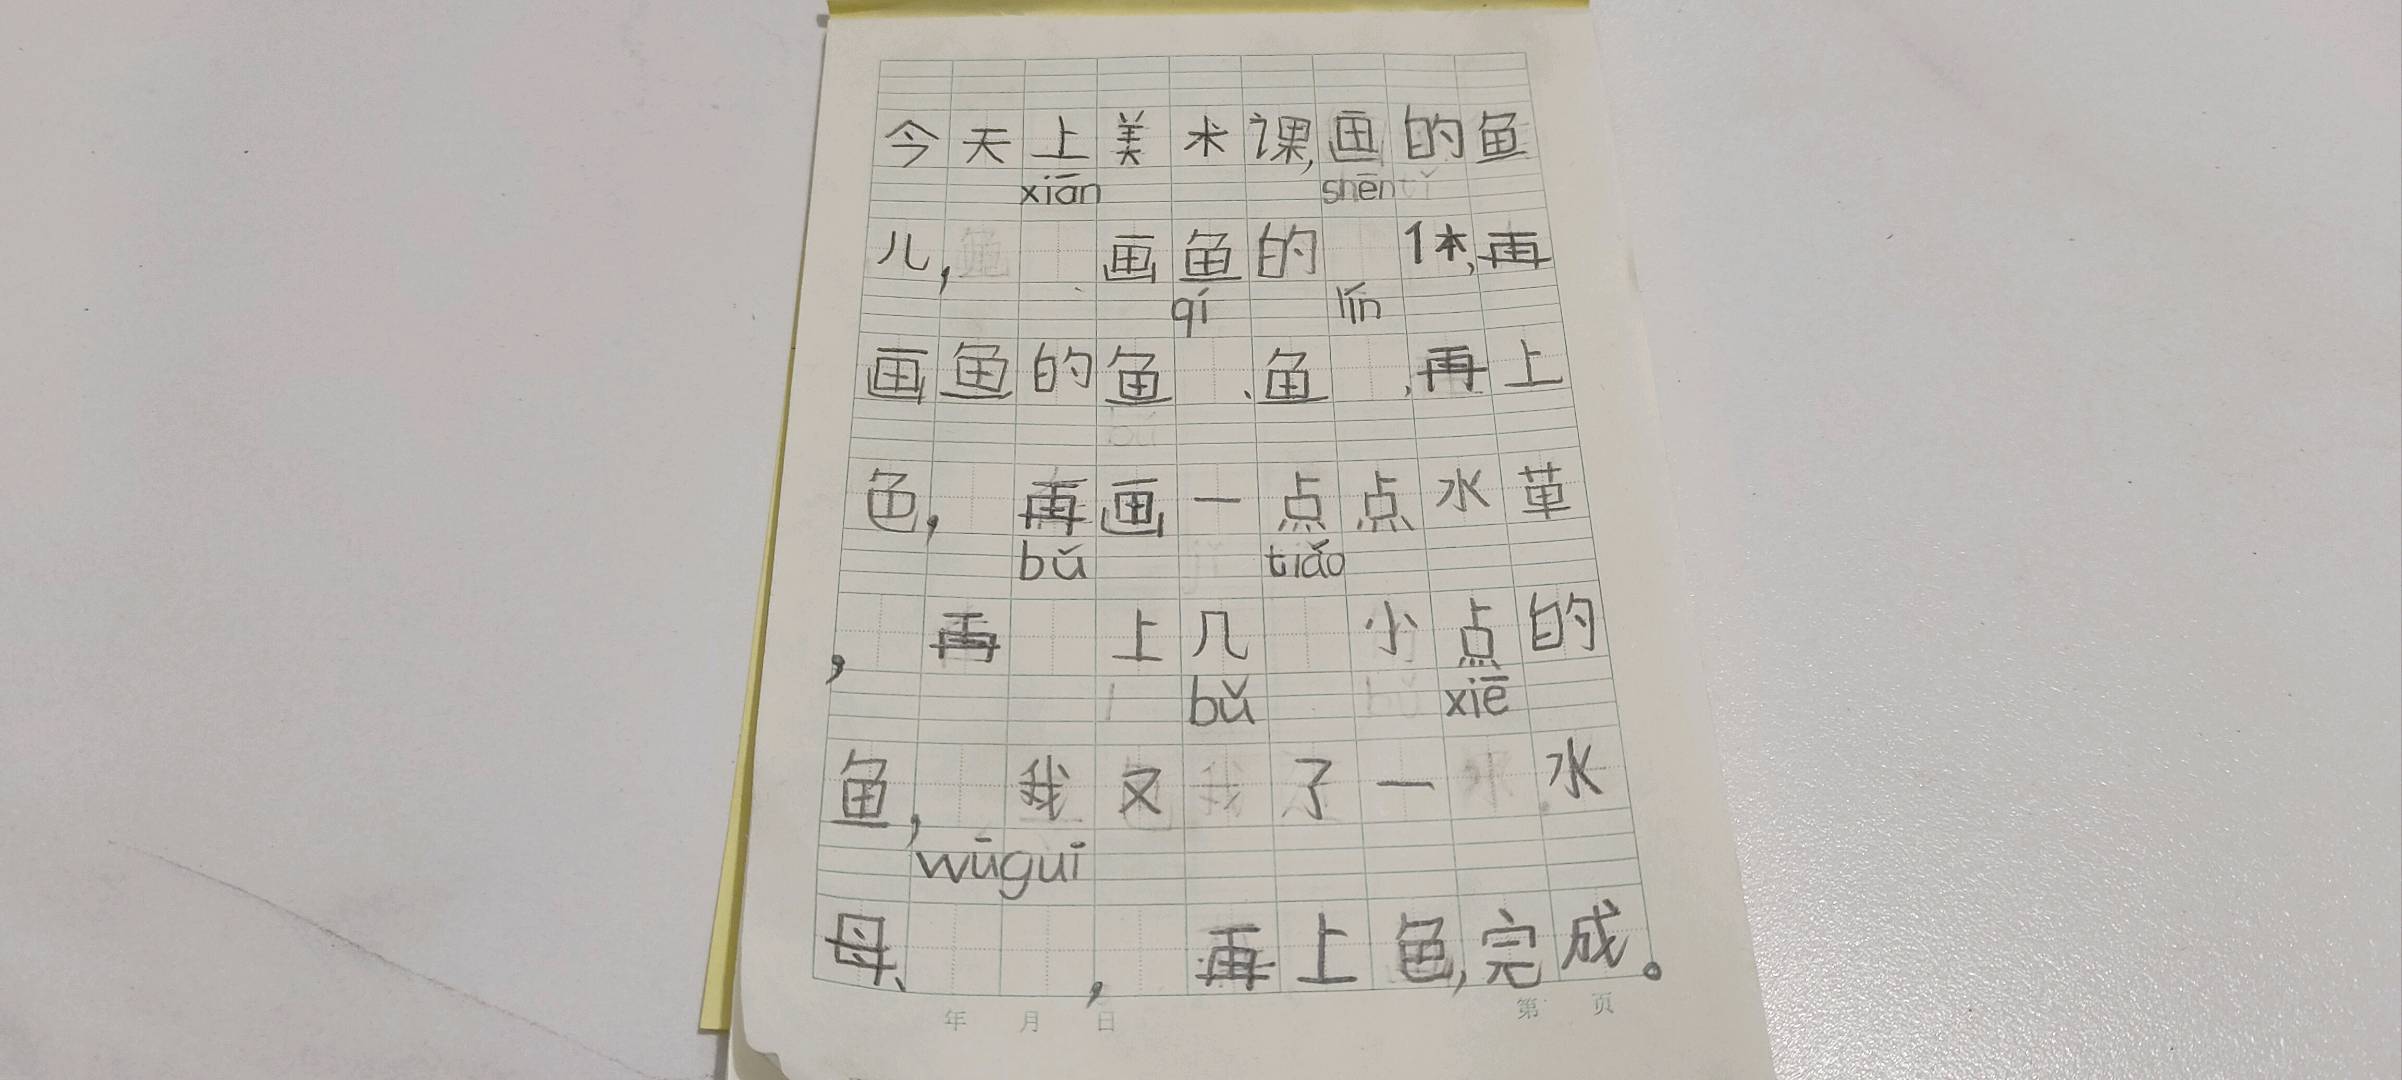 今天上美术课,画的鱼
xiān shēn
儿, 画鱼的 体,再
qí lín
画鱼的鱼 、鱼 ,再上
色, 再画一点点水草
bǔ tiǎo
,再 上几 小点的
bǔ xiē
鱼, 我又 了一 水
wūguī
母、 ,再上色,完成。
年 月 日 第 页